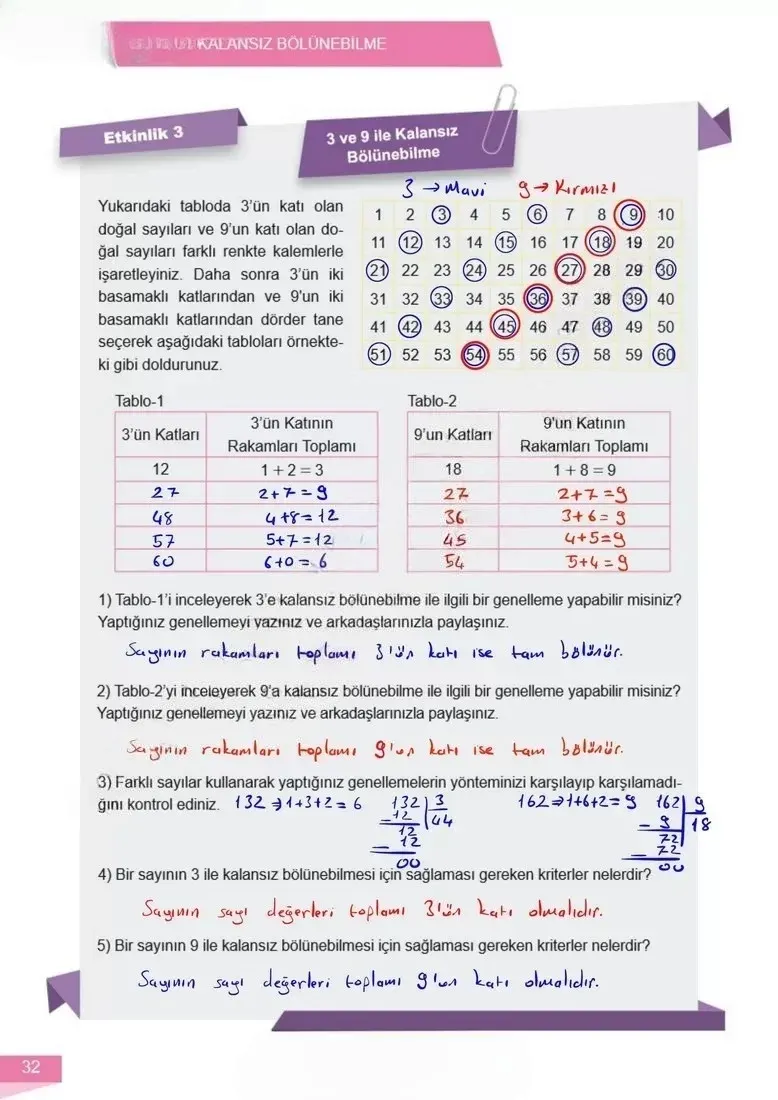 KALANSIZ BÖLÜNEBİLME
Etkinlik 3
3 ve 9 ile Kalansız
Bölünebilme
3 → Mavi 9 → Kırmızı
Yukarıdaki tabloda 3'ün katı olan
doğal sayıları ve 9'un katı olan do-
ğal sayıları farklı renkte kalemlerle
işaretleyiniz. Daha sonra 3'ün iki
basamaklı katlarından ve 9'un iki
basamaklı katlarından dörder tane
seçerek aşağıdaki tabloları örnekte-
ki gibi doldurunuz.
1 2 3 4 5 6 7 8 9 10
11 12 13 14 15 16 17 18 19 20
21 22 23 24 25 26 27 28 29 30
31 32 33 34 35 36 37 38 39 40
41 42 43 44 45 46 47 48 49 50
51 52 53 54 55 56 57 58 59 60
Tablo-1
3'ün Katları
3'ün Katının
Rakamları Toplamı
12 1 + 2 = 3
27 2+7=9
48 4+8=12
57 5+7=12
60 6+0=6
Tablo-2
9'un Katları
9'un Katının
Rakamları Toplamı
18 1 + 8 = 9
27 2+7=9
36 3+6=9
45 4+5=9
54 5+4=9
1) Tablo-1'i inceleyerek 3'e kalansız bölünebilme ile ilgili bir genelleme yapabilir misiniz?
Yaptığınız genellemeyi yazınız ve arkadaşlarınızla paylaşınız.
Sayının rakamları toplamı 3'ün katı ise tam bölünür.
2) Tablo-2'yi inceleyerek 9'a kalansız bölünebilme ile ilgili bir genelleme yapabilir misiniz?
Yaptığınız genellemeyi yazınız ve arkadaşlarınızla paylaşınız.
Sayının rakamları toplamı 9'un katı ise tam bölünür.
3) Farklı sayılar kullanarak yaptığınız genellemelerin yönteminizi karşılayıp karşılamadı-
ğını kontrol ediniz. 132 ⇒ 1+3+2=6 132 3 162 ⇒ 1+6+2=9 162 9
-12 44 - 9 18
12 72
- 12 - 72
00 00
4) Bir sayının 3 ile kalansız bölünebilmesi için sağlaması gereken kriterler nelerdir?
Sayının sayı değerleri toplamı 3'ün katı olmalıdır.
5) Bir sayının 9 ile kalansız bölünebilmesi için sağlaması gereken kriterler nelerdir?
Sayının sayı değerleri toplamı 9'un katı olmalıdır.
32